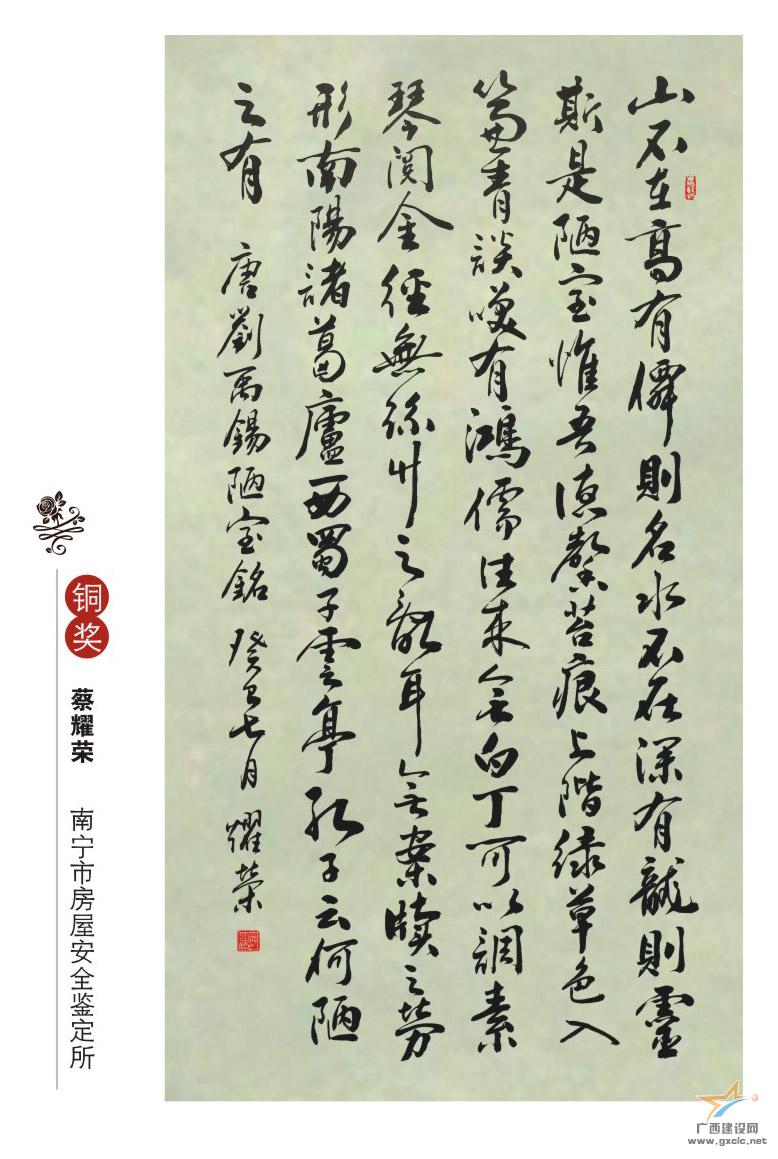 山不在高有僊則名水不在深有龍則靈
斯是陋室惟吾德馨苔痕上階綠草色入
簾青談咲有鴻儒往來無白丁可以調素
琴閱金經無絲竹之亂耳無案牘之勞
形南陽諸葛廬西蜀子雲亭孔子云何陋
之有 唐劉禹錫陋室銘 癸巳七月 燿榮
铜奖
蔡耀荣 南宁市房屋安全鉴定所
广西建设网
www.gxcic.net